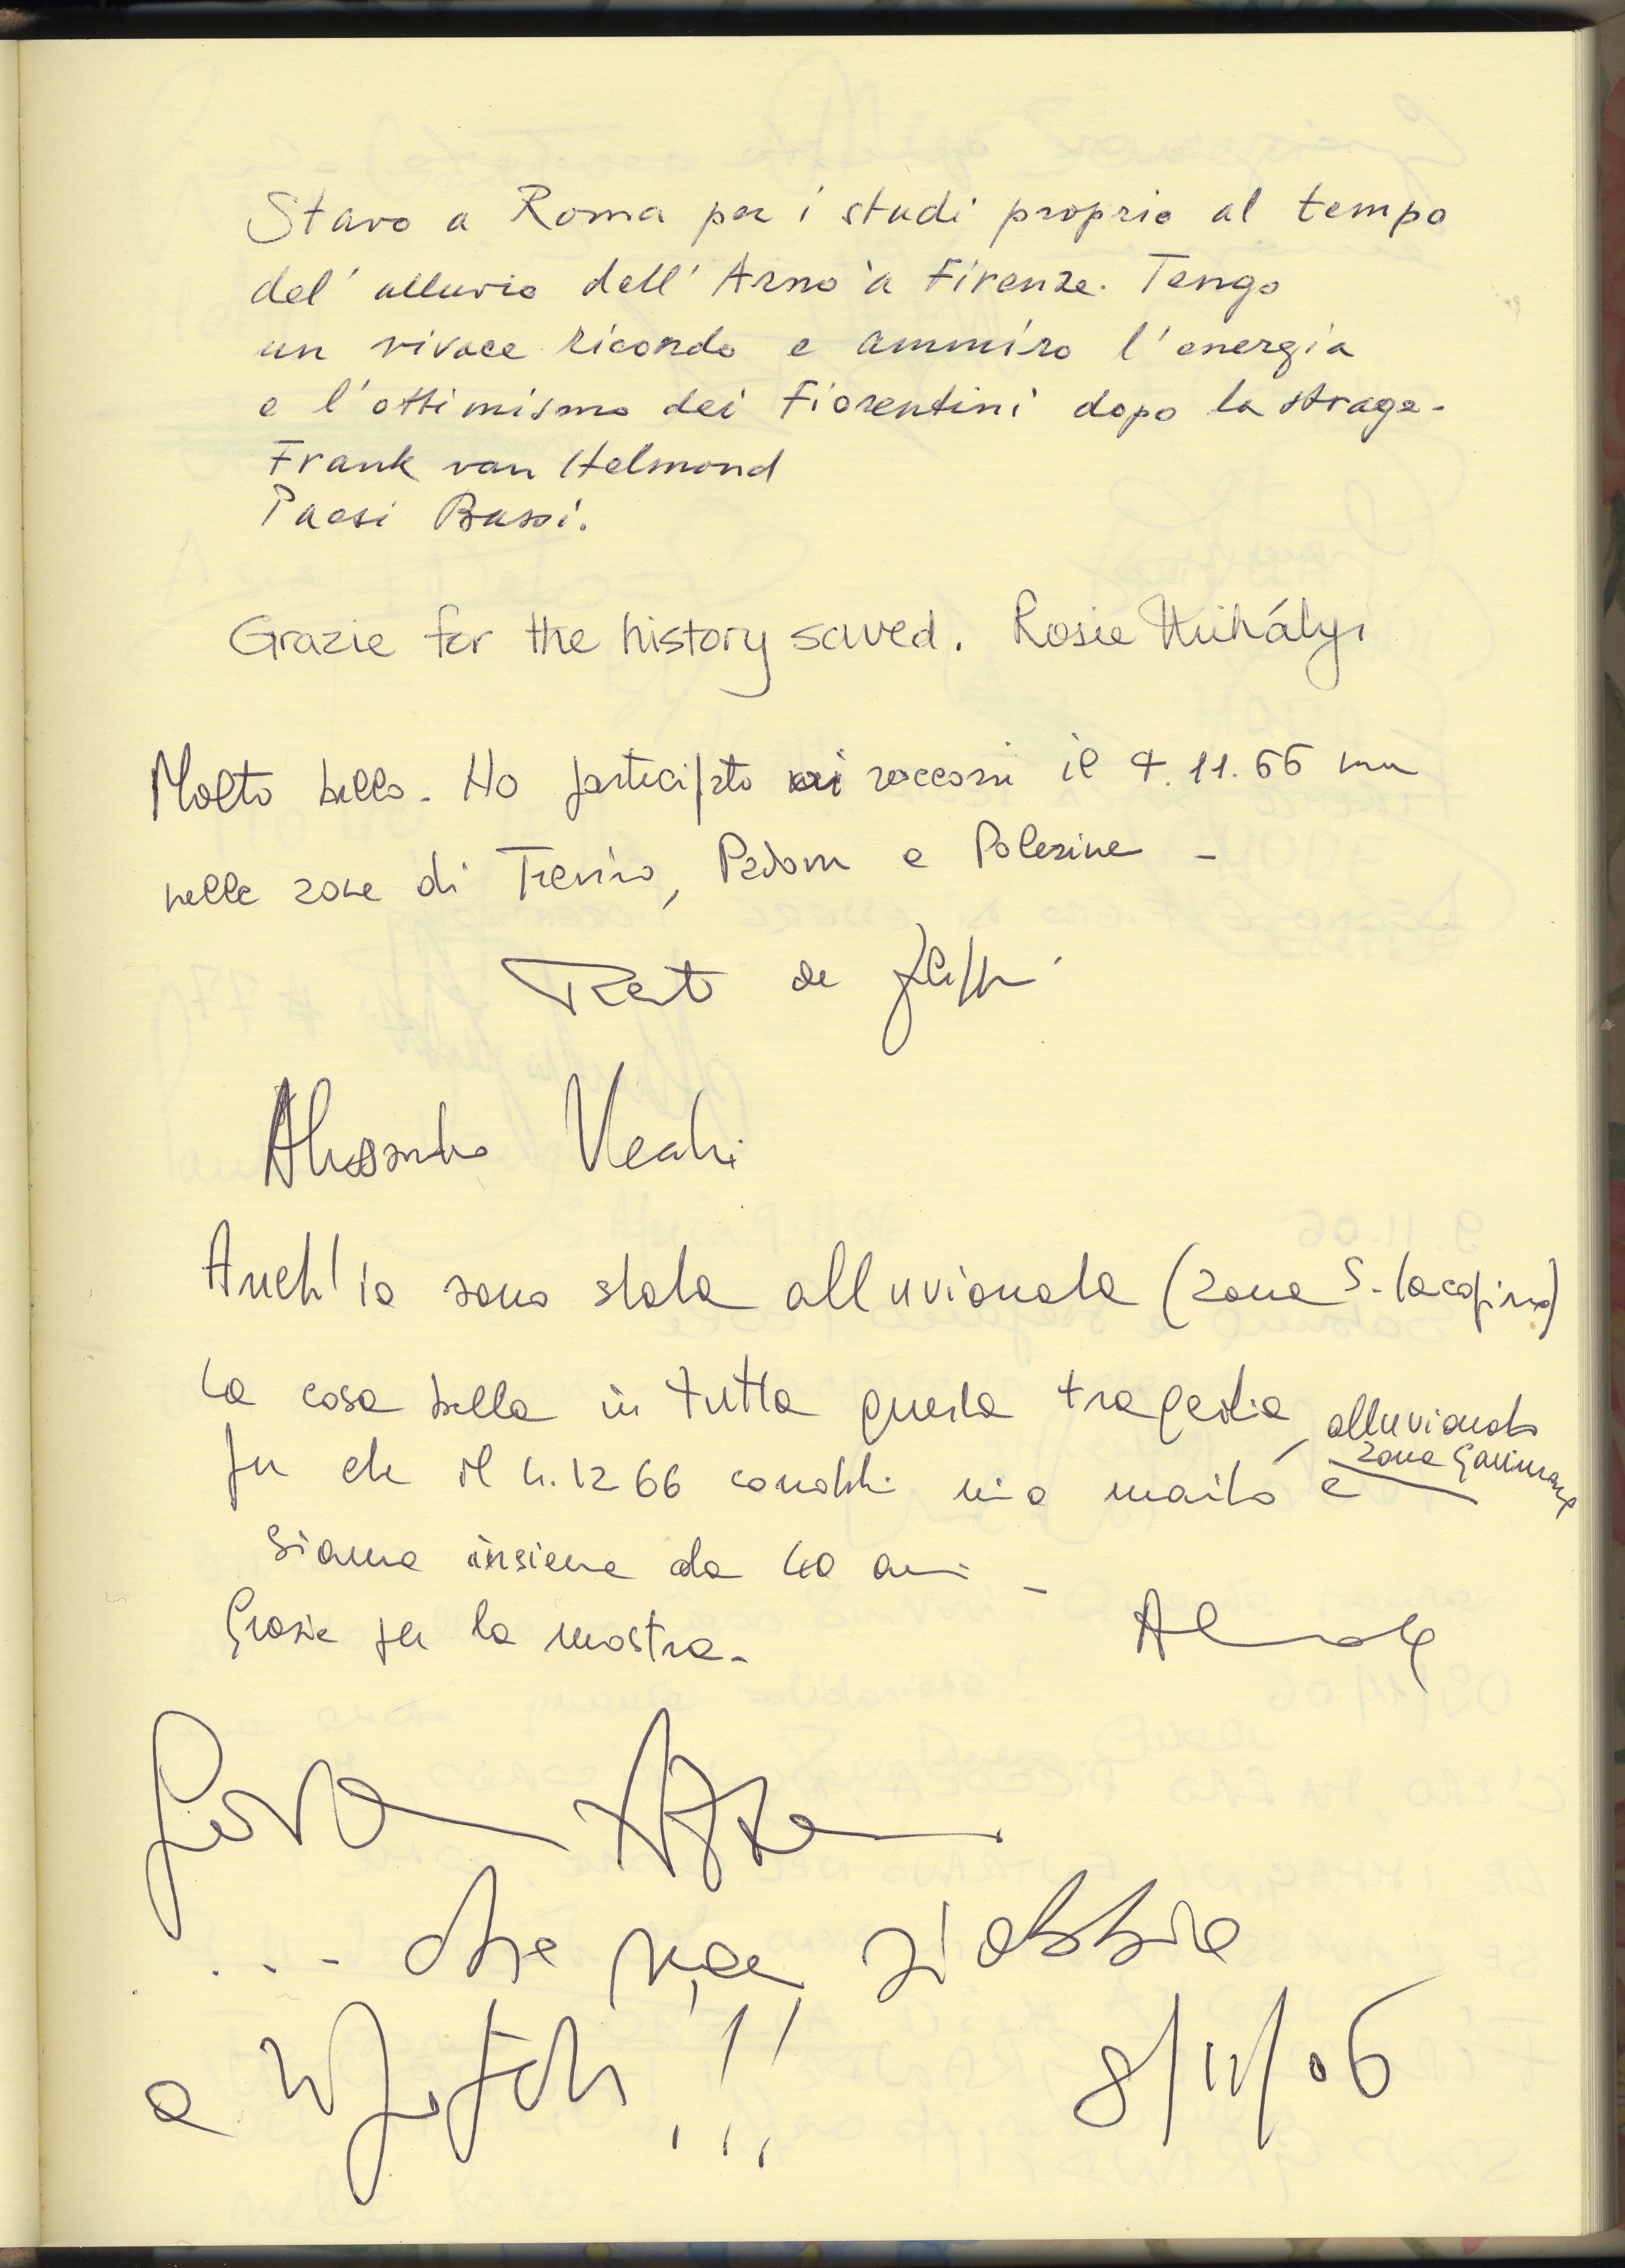 Stavo a Roma per i studi proprio al tempo
del' alluvio dell' Arno a Firenze. Tengo
un vivace ricordo e ammiro l'energia
e l'ottimismo dei Fiorentini dopo la strage.
Frank van Helmond
Paesi Bassi.
Grazie for the history saved. Rosie Mihályi
Molto bello. Ho participato ai soccorsi il 4.11.66 ma
nelle zone di Treviso, Padova e Polesine -
de
Alessandro
Anch'io sono stata alluvionata (zona S. Iacopino)
La cosa bella in tutta questa tragedia,
fu che il 4.12 66 conobbi mio marito alluvionato zona Gavinana e
siamo insieme da 40 anni -
Grazie per la mostra.
... che non si abbia
a ripetere !!!
8/11/06